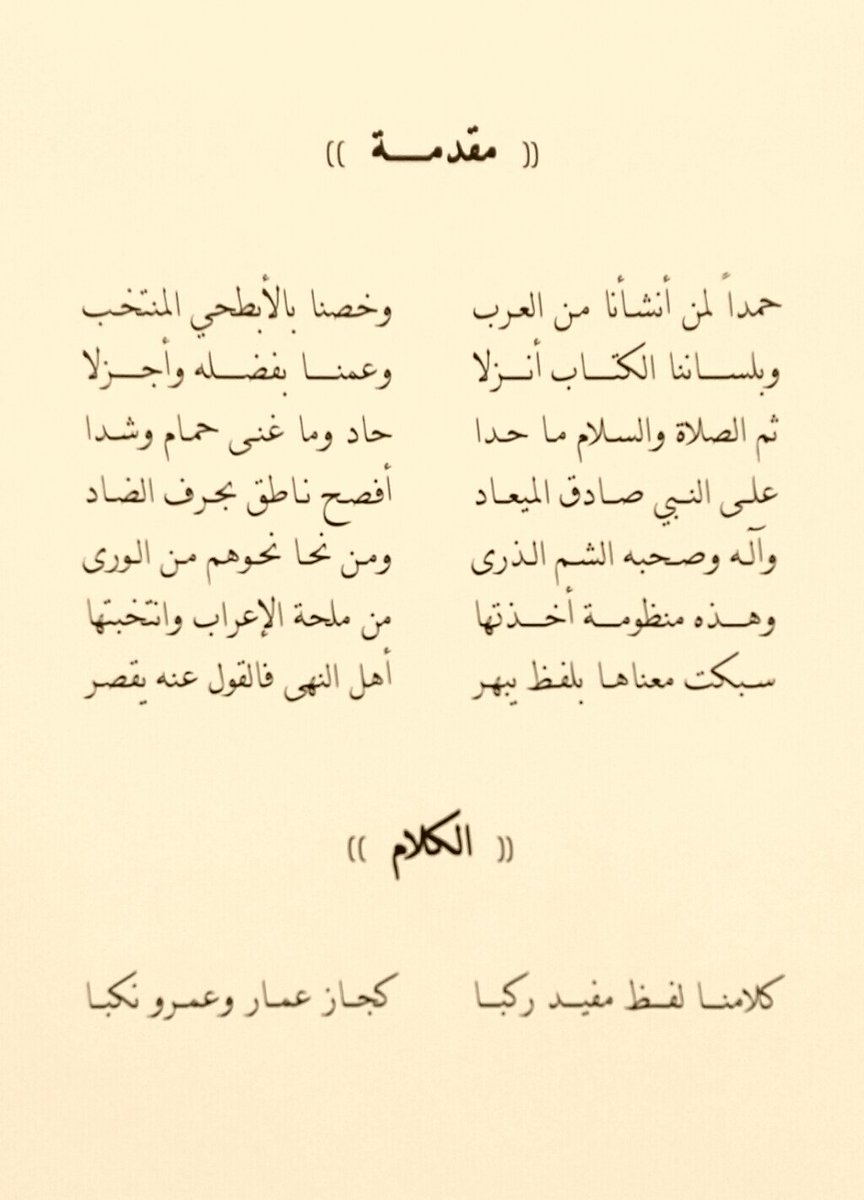 (( مقدمــة ))
حمداً لمن أنشأنا من العرب وخصنا بالأبطحي المنتخب
وبلســاننا الكتــاب أنــزلا وعمنــا بفضــله وأجــزلا
ثم الصلاة والسلام ما حدا حاد وما غنى حمام وشدا
على النبي صادق الميعاد أفصح ناطق بحرف الضاد
وآله وصحبه الشم الذرى ومن نحا نحوهم من الورى
وهــذه منظومــة أخــذتها من ملحة الإعراب وانتخبتها
سبكت معناها بلفظ يبهر أهل النهى فالقول عنه يقصر
(( الكلام ))
كلامنــا لفــظ مفيــد ركبــا كجاز عمار وعمرو نكبا